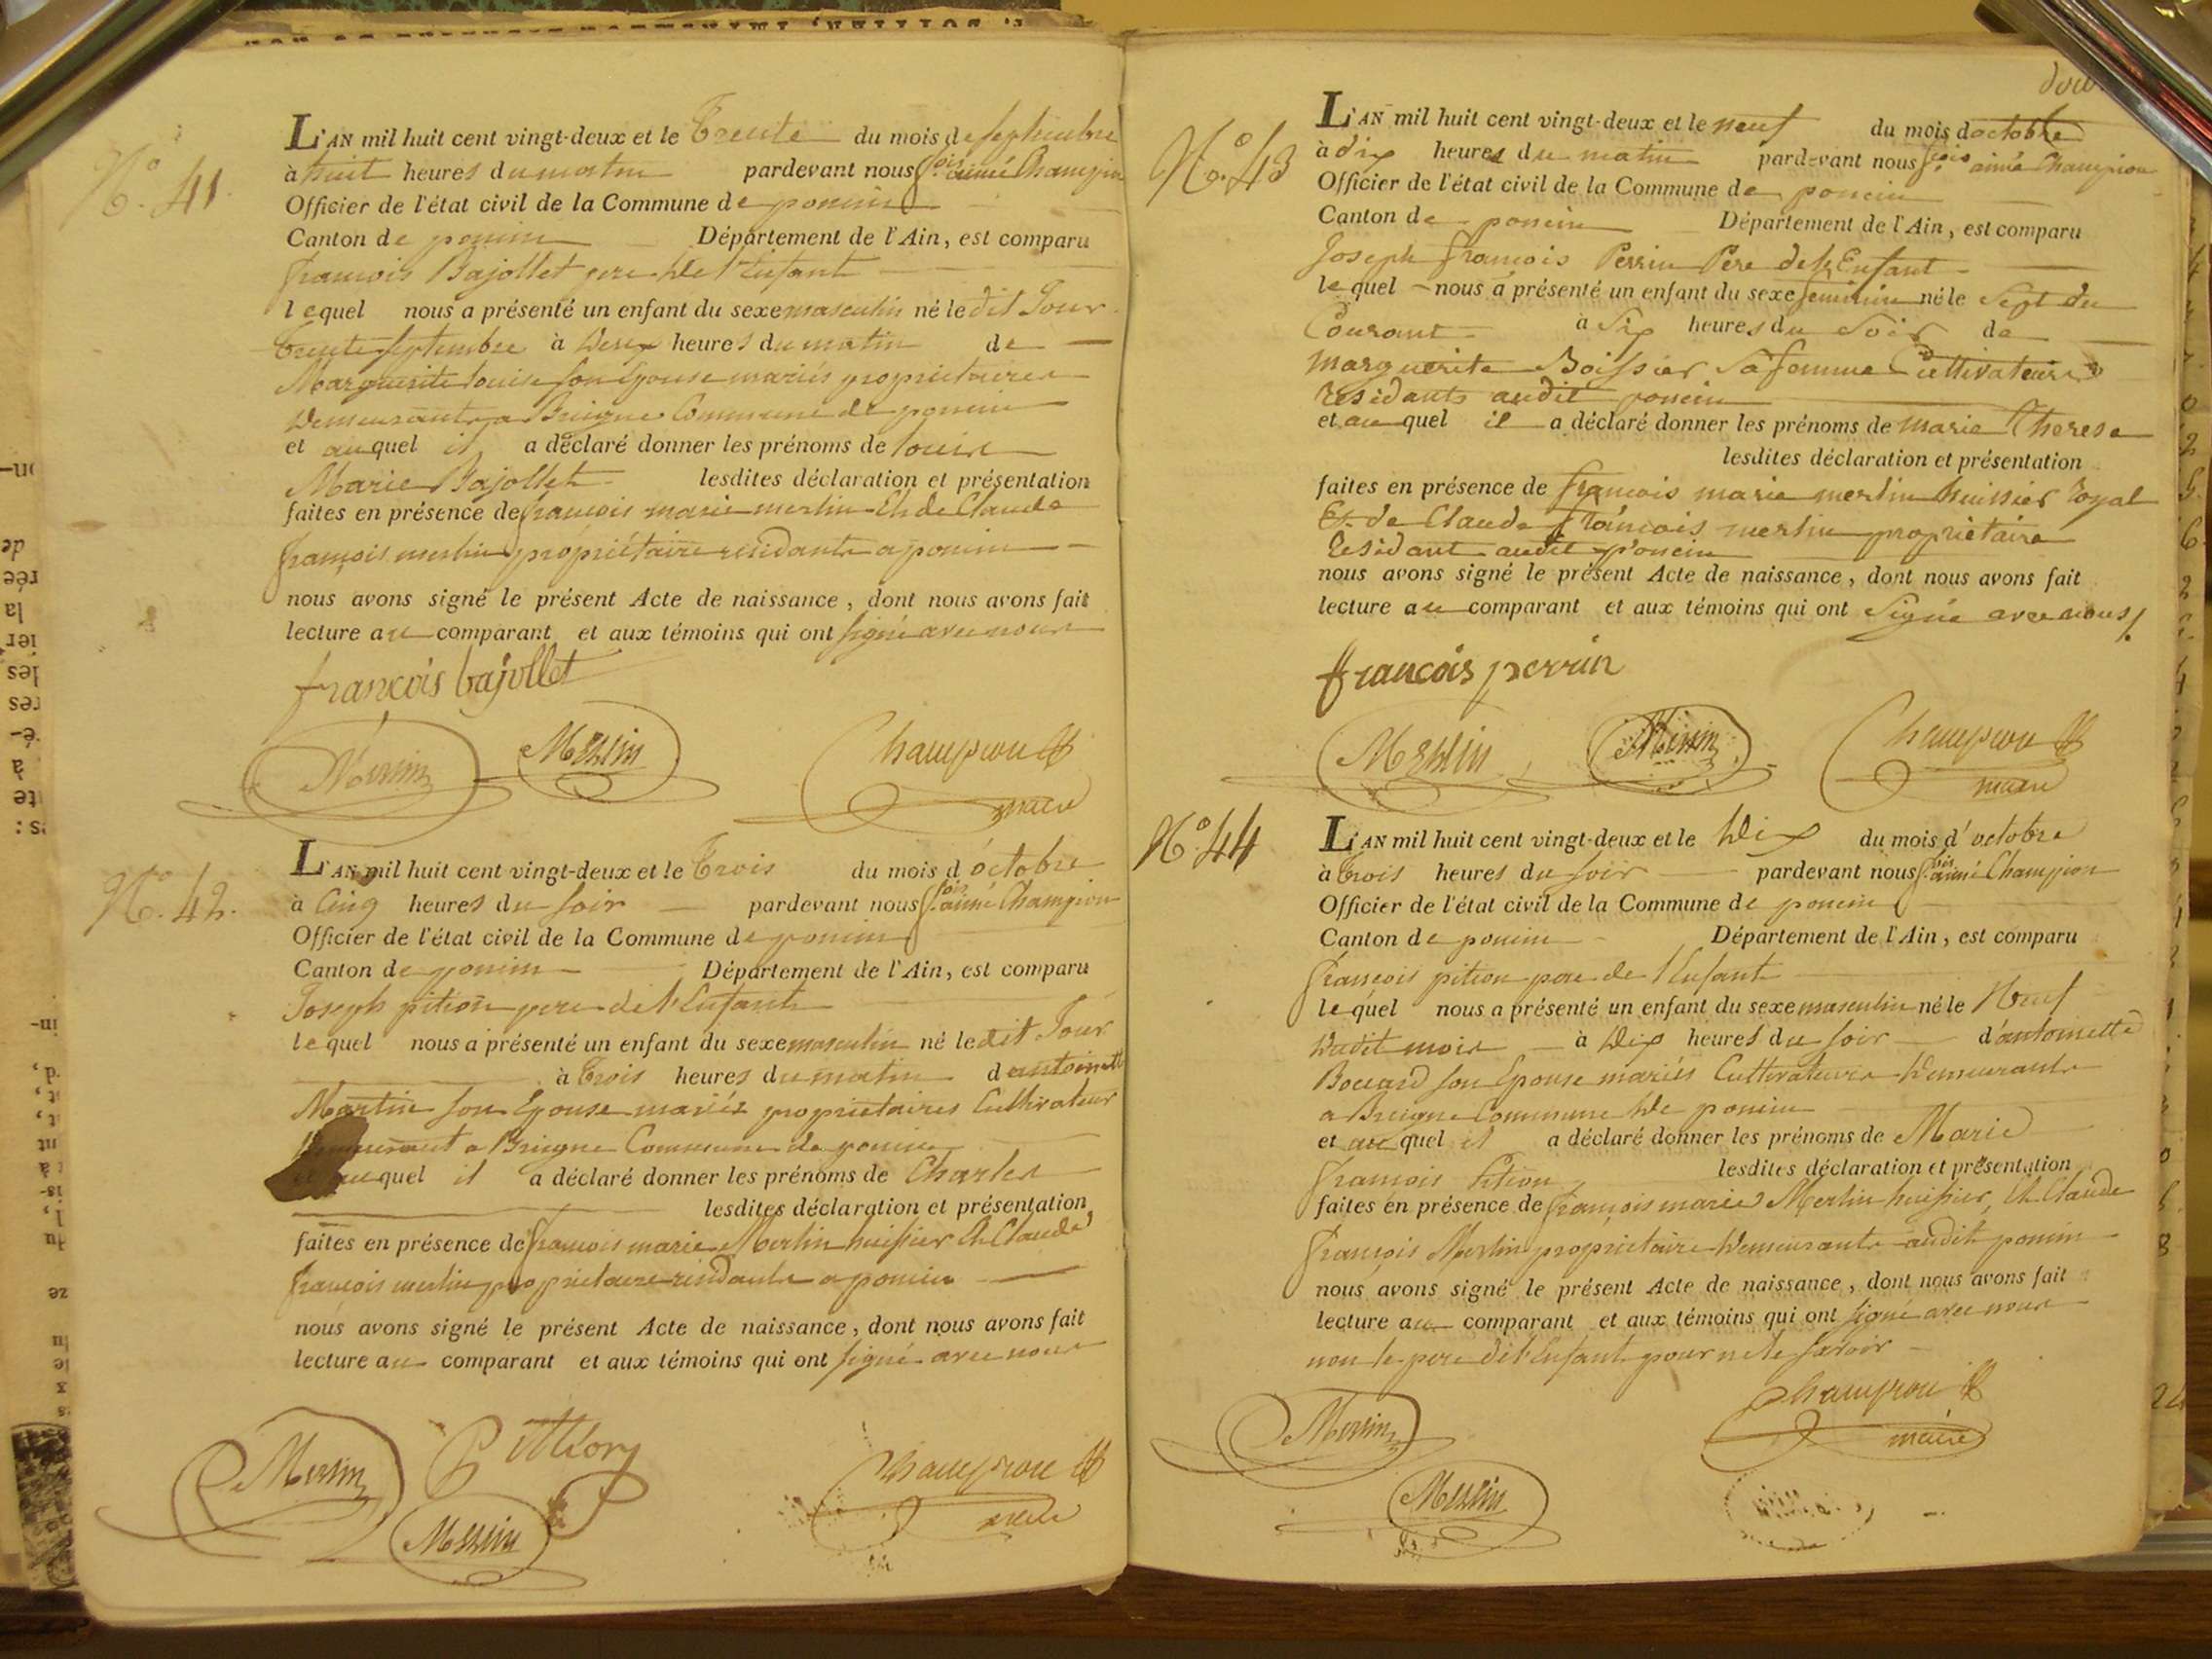 N.o 41.
L'AN mil huit cent vingt-deux et le Trente du mois de septembre
à huit heures du matin pardevant nous f.ois aimé Champion
Officier de l'état civil de la Commune de poncin
Canton de poncin Département de l'Ain, est comparu
françois Bajollet pere de l'Enfant
lequel nous a présenté un enfant du sexe masculin né le dit Jour
trente septembre à deux heures du matin de
Marguerite louise son Epouse mariés propriétaires
demeurants a Breigne Commune de poncin
et auquel il a déclaré donner les prénoms de louis
Marie Bajollet lesdites déclaration et présentation
faites en présence de françois marie merlin Et de Claude
françois merlin propriétaire residants a poncin
nous avons signé le présent Acte de naissance, dont nous avons fait
lecture au comparant et aux témoins qui ont signé avec nous
françois bajollet
Merlin Merlin Champion
maire
N.o 42.
L'AN mil huit cent vingt-deux et le Trois du mois d'octobre
à Cinq heures du soir pardevant nous f.ois aimé Champion
Officier de l'état civil de la Commune de poncin
Canton de poncin Département de l'Ain, est comparu
Joseph pition pere de l'Enfant
lequel nous a présenté un enfant du sexe masculin né le dit Jour
à trois heures du matin d'antoinette
Martin son Epouse mariés propriétaires Cultivateur
demeurant a Breigne Commune de poncin
et auquel il a déclaré donner les prénoms de Charles
lesdites déclaration et présentation
faites en présence de françois marie Merlin huissier Et Claude
françois merlin propriétaire residants a poncin
nous avons signé le présent Acte de naissance, dont nous avons fait
lecture au comparant et aux témoins qui ont signé avec nous
Merlin Champion
Merlin maire
N.o 43
L'AN mil huit cent vingt-deux et le neuf du mois d'octobre
à dix heures du matin pardevant nous f.ois aimé Champion
Officier de l'état civil de la Commune de poncin
Canton de poncin Département de l'Ain, est comparu
Joseph françois Perrin Pere de l'Enfant
lequel nous a présenté un enfant du sexe feminin né le Sept du
Courant à Six heures du Soir de
marguerite Boissier Sa femme Cultivateurs
residants audit poncin
et auquel il a déclaré donner les prénoms de marie Therese
lesdites déclaration et présentation
faites en présence de françois marie merlin huissier royal
Et de Claude françois merlin propriétaire
Residant audit poncin
nous avons signé le présent Acte de naissance, dont nous avons fait
lecture au comparant et aux témoins qui ont Signé avec nous
françois perrin
Merlin Merlin Champion
maire
N.o 44
L'AN mil huit cent vingt-deux et le dix du mois d'octobre
à trois heures du soir pardevant nous f.ois aimé Champion
Officier de l'état civil de la Commune de poncin
Canton de poncin Département de l'Ain, est comparu
françois pition pere de l'Enfant
lequel nous a présenté un enfant du sexe masculin né le Neuf
dudit mois à dix heures du soir d'antoinette
Bocard son Epouse mariés Cultivateurs demeurants
a Breigne Commune de poncin
et auquel il a déclaré donner les prénoms de Marie
françois Pition lesdites déclaration et présentation
faites en présence de françois marie Merlin huissier, Et Claude
françois Merlin propriétaire demeurants audit poncin
nous avons signé le présent Acte de naissance, dont nous avons fait
lecture au comparant et aux témoins qui ont signé avec nous
non le pere de l'Enfant pour ne le savoir
Merlin Champion
Merlin maire